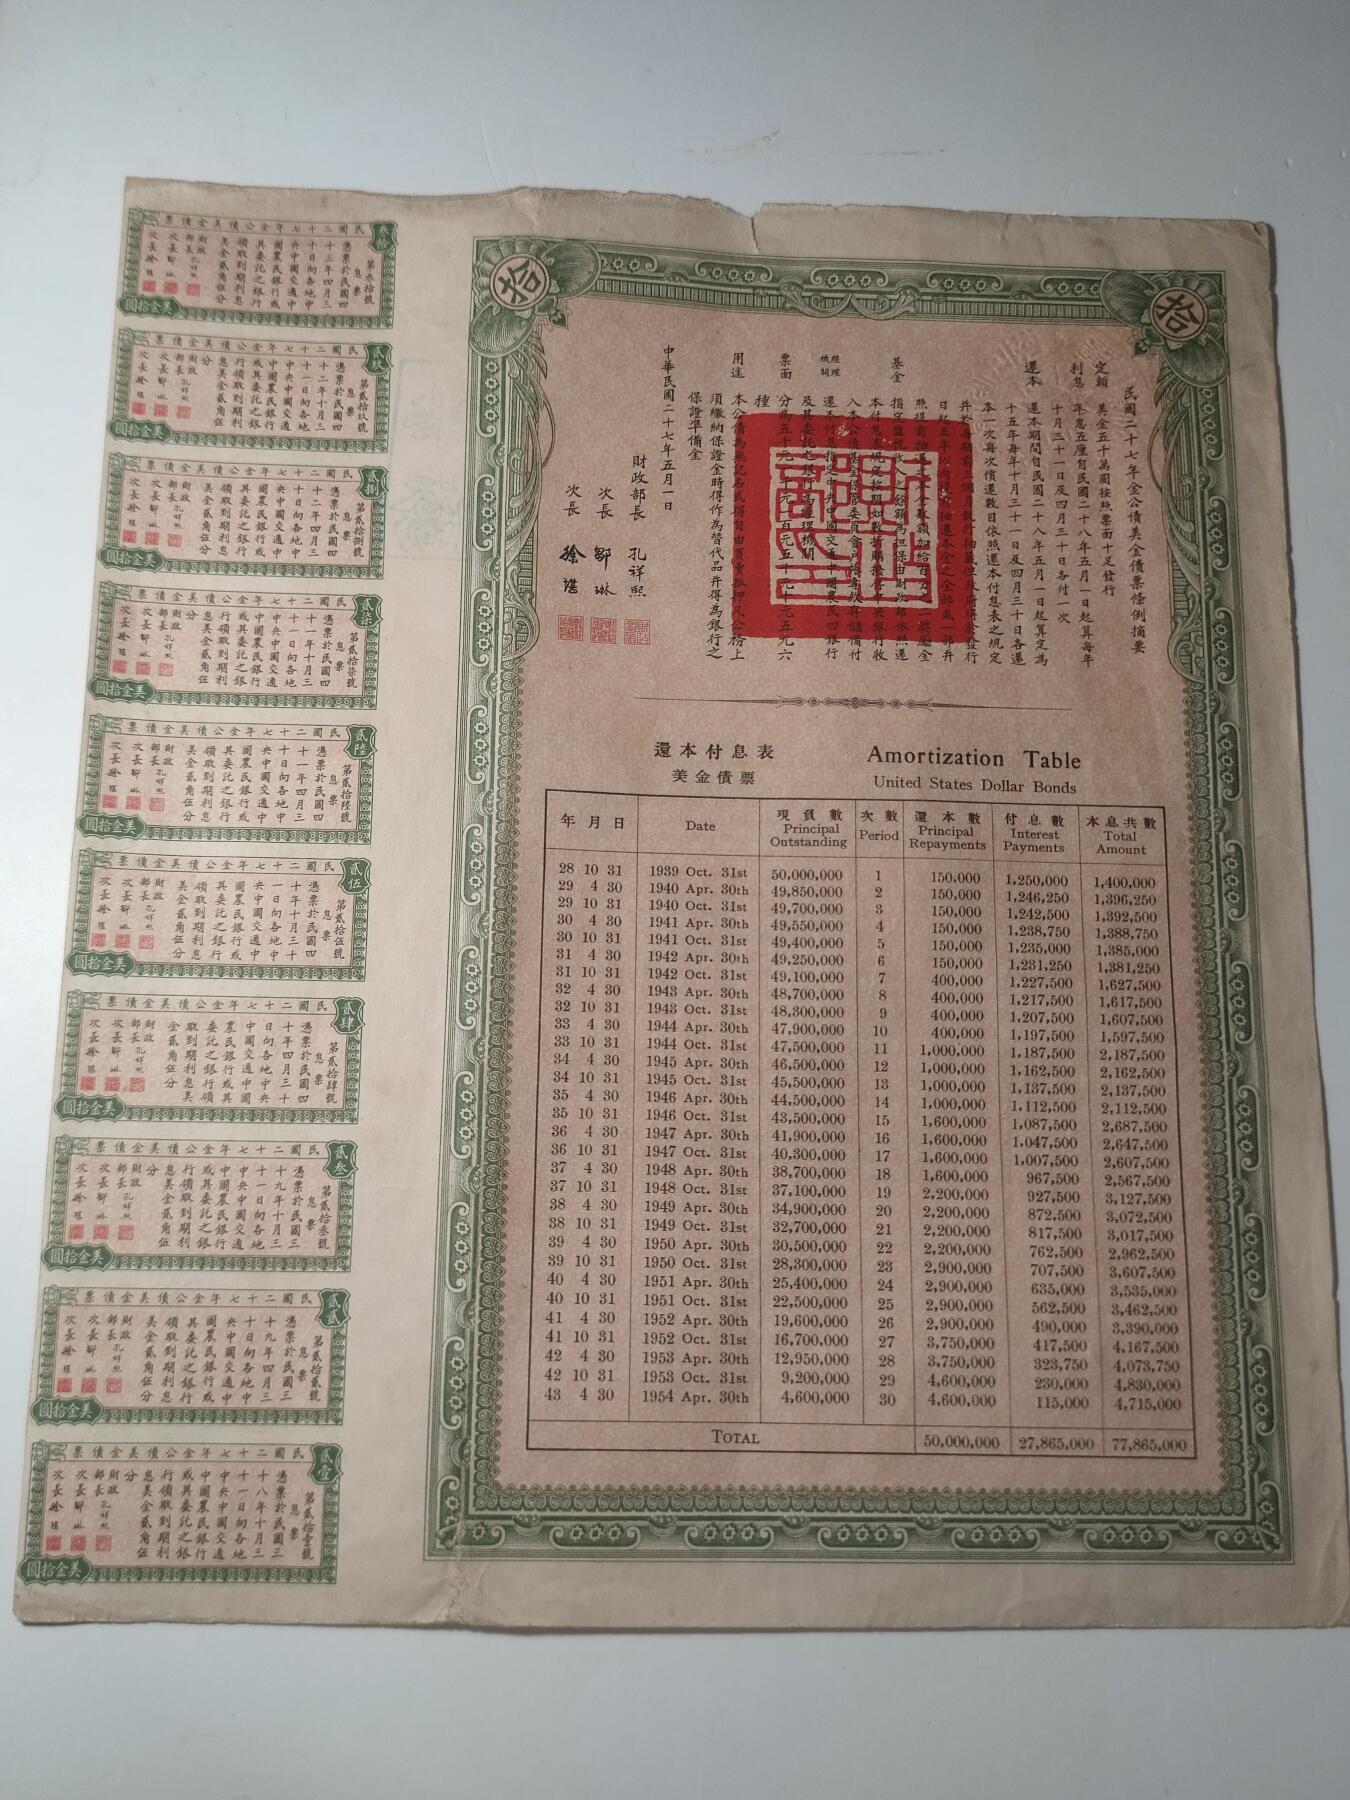 民國二十七年金公債美金債票條例摘要
定額 美金五千萬圓按照票面十足發行
利息 年息五厘自民國二十八年五月一日起算每年
十月三十一日及四月三十日各付一次
還本 還本期間自民國二十八年五月一日起算定為
十五年每年十月三十一日及四月三十日各還
本一次每次償還數目依照還本付息表之規定
並於每期前三個月執行抽籤但政府得於發行
日起五年以後提前抽還本金之全部或一部并
照提前抽還之本金數額加給百分之 獎勵金
基金 指定鹽稅收入之餘額為担保由財政部依照還
本付息表規定按期如數折購撥存中央銀行收
入本公債基金保管委員會戶帳專款存儲備付
經理機關 還本付息指定中央中國交通中國農民四銀行
及其委託之銀行為經理機關
票面 分為五千元一千元一百元五十元十元五元六
種
用途 本公債為無記名式得自由買賣抵押凡公務上
須繳納保證金時得作為替代品并得為銀行之
保證準備金
中華民國二十七年五月一日
財政部長 孔祥熙
次長 鄒琳
次長 徐堪
拾
拾
還本付息表 Amortization Table
美金債票 United States Dollar Bonds
年月日 Date 現負數 Principal Outstanding 次數 Period 還本數 Principal Repayments 付息數 Interest Payments 本息共數 Total Amount
28 10 31 1939 Oct. 31st 50,000,000 1 150,000 1,250,000 1,400,000
29 4 30 1940 Apr. 30th 49,850,000 2 150,000 1,246,250 1,396,250
29 10 31 1940 Oct. 31st 49,700,000 3 150,000 1,242,500 1,392,500
30 4 30 1941 Apr. 30th 49,550,000 4 150,000 1,238,750 1,388,750
30 10 31 1941 Oct. 31st 49,400,000 5 150,000 1,235,000 1,385,000
31 4 30 1942 Apr. 30th 49,250,000 6 150,000 1,231,250 1,381,250
31 10 31 1942 Oct. 31st 49,100,000 7 400,000 1,227,500 1,627,500
32 4 30 1943 Apr. 30th 48,700,000 8 400,000 1,217,500 1,617,500
32 10 31 1943 Oct. 31st 48,300,000 9 400,000 1,207,500 1,607,500
33 4 30 1944 Apr. 30th 47,900,000 10 400,000 1,197,500 1,597,500
33 10 31 1944 Oct. 31st 47,500,000 11 1,000,000 1,187,500 2,187,500
34 4 30 1945 Apr. 30th 46,500,000 12 1,000,000 1,162,500 2,162,500
34 10 31 1945 Oct. 31st 45,500,000 13 1,000,000 1,137,500 2,137,500
35 4 30 1946 Apr. 30th 44,500,000 14 1,000,000 1,112,500 2,112,500
35 10 31 1946 Oct. 31st 43,500,000 15 1,600,000 1,087,500 2,687,500
36 4 30 1947 Apr. 30th 41,900,000 16 1,600,000 1,047,500 2,647,500
36 10 31 1947 Oct. 31st 40,300,000 17 1,600,000 1,007,500 2,607,500
37 4 30 1948 Apr. 30th 38,700,000 18 1,600,000 967,500 2,567,500
37 10 31 1948 Oct. 31st 37,100,000 19 2,200,000 927,500 3,127,500
38 4 30 1949 Apr. 30th 34,900,000 20 2,200,000 872,500 3,072,500
38 10 31 1949 Oct. 31st 32,700,000 21 2,200,000 817,500 3,017,500
39 4 30 1950 Apr. 30th 30,500,000 22 2,200,000 762,500 2,962,500
39 10 31 1950 Oct. 31st 28,300,000 23 2,900,000 707,500 3,607,500
40 4 30 1951 Apr. 30th 25,400,000 24 2,900,000 635,000 3,535,000
40 10 31 1951 Oct. 31st 22,500,000 25 2,900,000 562,500 3,462,500
41 4 30 1952 Apr. 30th 19,600,000 26 2,900,000 490,000 3,390,000
41 10 31 1952 Oct. 31st 16,700,000 27 3,750,000 417,500 4,167,500
42 4 30 1953 Apr. 30th 12,950,000 28 3,750,000 323,750 4,073,750
42 10 31 1953 Oct. 31st 9,200,000 29 4,600,000 230,000 4,830,000
43 4 30 1954 Apr. 30th 4,600,000 30 4,600,000 115,000 4,715,000
TOTAL 50,000,000 27,865,000 77,865,000
叁拾
民國二十七年金公債美金債票
第叁拾號
息票
憑票於民國四
十三年四月三
十日向各地中
央中國交通中
國農民銀行或
其委託之銀行
領取到期利息
美金貳角伍分
財政部長孔祥熙
次長鄒琳
次長徐堪
美金拾圓
貳玖
民國二十七年金公債美金債票
第貳拾玖號
息票
憑票於民國四
十二年十月三
十一日向各地
中央中國交通
中國農民銀行
或其委託之銀
行領取到期利
息美金貳角伍
分
財政部長孔祥熙
次長鄒琳
次長徐堪
美金拾圓
貳捌
民國二十七年金公債美金債票
第貳拾捌號
息票
憑票於民國四
十二年四月三
十日向各地中
央中國交通中
國農民銀行或
其委託之銀行
領取到期利息
美金貳角伍分
財政部長孔祥熙
次長鄒琳
次長徐堪
美金拾圓
貳柒
民國二十七年金公債美金債票
第貳拾柒號
息票
憑票於民國四
十一年十月三
十一日向各地
中央中國交通
中國農民銀行
或其委託之銀
行領取到期利
息美金貳角伍
分
財政部長孔祥熙
次長鄒琳
次長徐堪
美金拾圓
貳陸
民國二十七年金公債美金債票
第貳拾陸號
息票
憑票於民國四
十一年四月三
十日向各地中
央中國交通中
國農民銀行或
其委託之銀行
領取到期利息
美金貳角伍分
財政部長孔祥熙
次長鄒琳
次長徐堪
美金拾圓
貳伍
民國二十七年金公債美金債票
第貳拾伍號
息票
憑票於民國四
十年十月三十
一日向各地中
央中國交通中
國農民銀行或
其委託之銀行
領取到期利息
美金貳角伍分
財政部長孔祥熙
次長鄒琳
次長徐堪
美金拾圓
貳肆
民國二十七年金公債美金債票
第貳拾肆號
息票
憑票於民國四
十年四月三十
日向各地中央
中國交通中國
農民銀行或其
委託之銀行領
取到期利息美
金貳角伍分
財政部長孔祥熙
次長鄒琳
次長徐堪
美金拾圓
貳叁
民國二十七年金公債美金債票
第貳拾叁號
息票
憑票於民國三
十九年十月三
十一日向各地
中央中國交通
中國農民銀行
或其委託之銀
行領取到期利
息美金貳角伍
分
財政部長孔祥熙
次長鄒琳
次長徐堪
美金拾圓
貳貳
民國二十七年金公債美金債票
第貳拾貳號
息票
憑票於民國三
十九年四月三
十日向各地中
央中國交通中
國農民銀行或
其委託之銀行
領取到期利息
美金貳角伍分
財政部長孔祥熙
次長鄒琳
次長徐堪
美金拾圓
貳壹
民國二十七年金公債美金債票
第貳拾壹號
息票
憑票於民國三
十八年十月三
十一日向各地
中央中國交通
中國農民銀行
或其委託之銀
行領取到期利
息美金貳角伍
分
財政部長孔祥熙
次長鄒琳
次長徐堪
美金拾圓